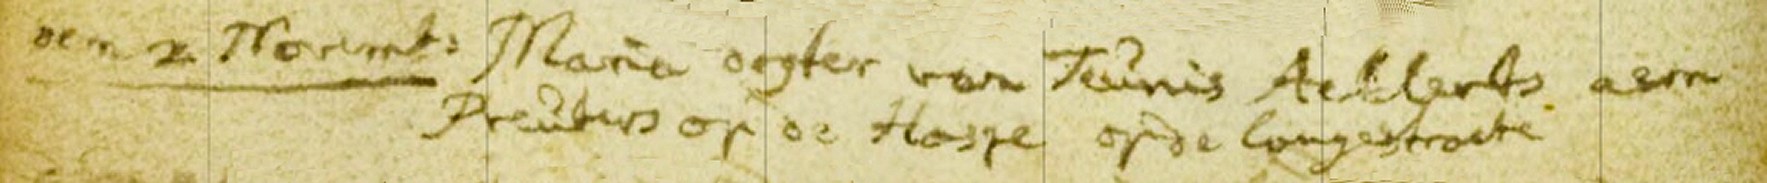 den 2 Novemb: Maria dogter van Teunis Aelderts aen
Preuters op de Hasge op de Langestraete